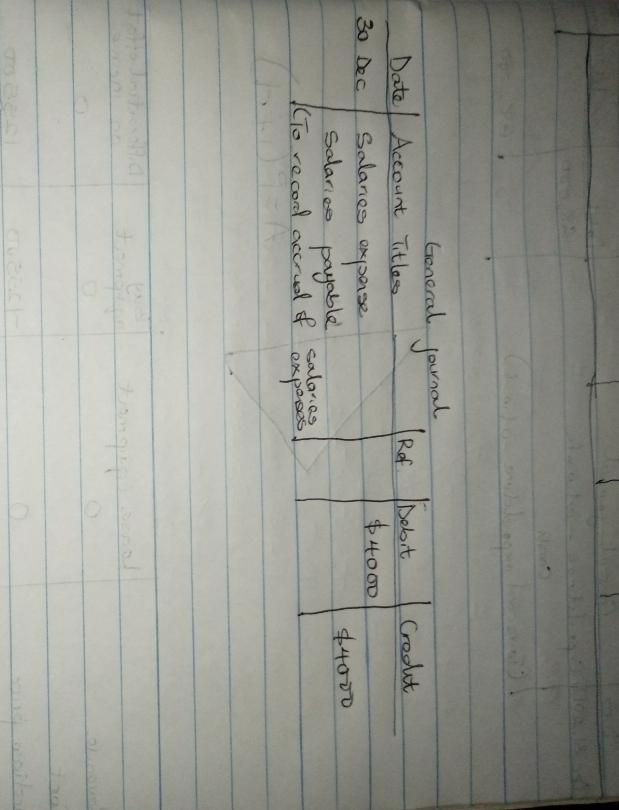 General journal
Date Account Titles Ref. Debit Credit
30 Dec Salaries expense $4000
Salaries payable $4000
(To record accrual of salaries
expenses